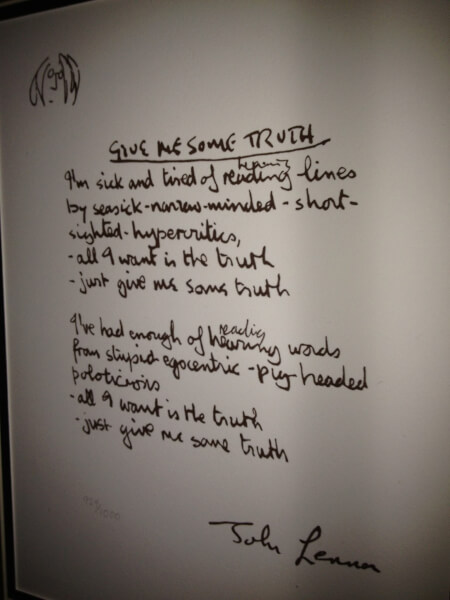 GIVE ME SOME TRUTH.
hearing
I'm sick and tired of reading lines
by seasick-narrow-minded-short-
sighted-hypercritics,
-all I want is the truth
-just give me some truth
reading
I've had enough of hearing words
from stupid-egocentric-pig-headed
poloticians
-all I want is the truth
-just give me some truth
John Lennon